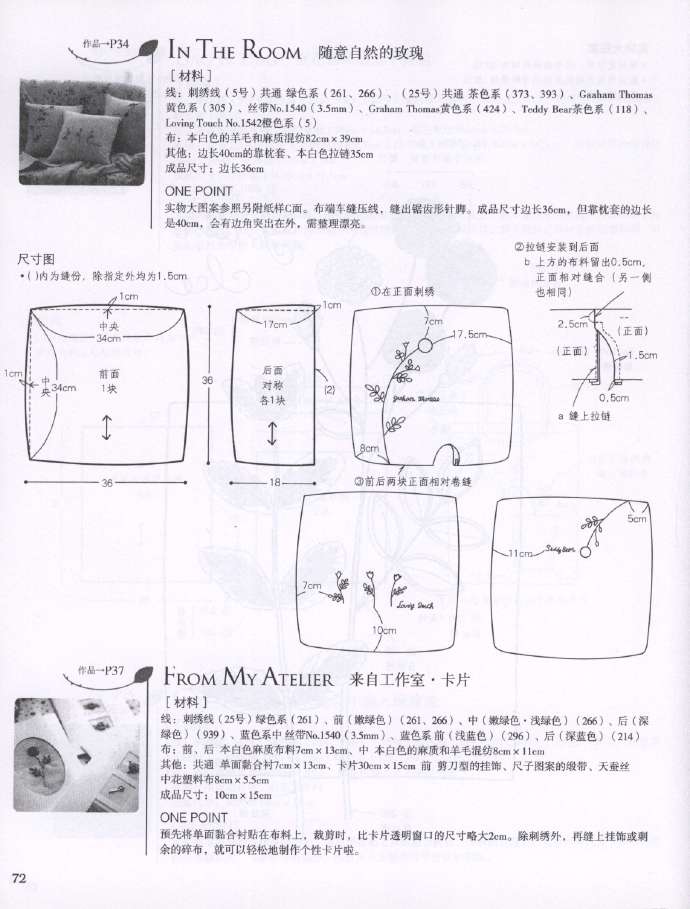 作品→P34
IN THE ROOM 随意自然的玫瑰
[材料]
线：刺绣线（5号）共通 绿色系（261、266）、（25号）共通 茶色系（373、393）、Gaaham Thomas
黄色系（305）、丝带No.1540（3.5mm）、Graham Thomas黄色系（424）、Teddy Bear茶色系（118）、
Loving Touch No.1542橙色系（5）
布：本白色的羊毛和麻质混纺82cm×39cm
其他：边长40cm的靠枕套、本白色拉链35cm
成品尺寸：边长36cm
ONE POINT
实物大图案参照另附纸样C面。布端车缝压线，缝出锯齿形针脚。成品尺寸边长36cm，但靠枕套的边长
是40cm，会有边角突出在外，需整理漂亮。
尺寸图
•( )内为缝份，除指定外均为1.5cm
1cm
中央
34cm
1cm
中央
34cm
前面
1块
36
36
1cm
17cm
后面
对称
各1块
(2)
18
①在正面刺绣
7cm
17.5cm
graham thomas
8cm
②拉链安装到后面
b 上方的布料留出0.5cm，
正面相对缝合（另一侧
也相同）
2.5cm
（正面）
（正面）
1.5cm
0.5cm
a 缝上拉链
③前后两块正面相对卷缝
7cm
10cm
5cm
11cm
作品→P37
FROM MY ATELIER 来自工作室·卡片
[材料]
线：刺绣线（25号）绿色系（261）、前（嫩绿色）（261、266）、中（嫩绿色·浅绿色）（266）、后（深
绿色）（939）、蓝色系中 丝带No.1540（3.5mm）、蓝色系 前（浅蓝色）（296）、后（深蓝色）（214）
布：前、后 本白色麻质布料7cm×13cm、中 本白色的麻质和羊毛混纺8cm×11cm
其他：共通 单面黏合衬7cm×13cm、卡片30cm×15cm 前 剪刀型的挂饰、尺子图案的缎带、天蚕丝
中花塑料布8cm×5.5cm
成品尺寸：10cm×15cm
ONE POINT
预先将单面黏合衬贴在布料上，裁剪时，比卡片透明窗口的尺寸略大2cm。除刺绣外，再缝上挂饰或剩
余的碎布，就可以轻松地制作个性卡片啦。
72